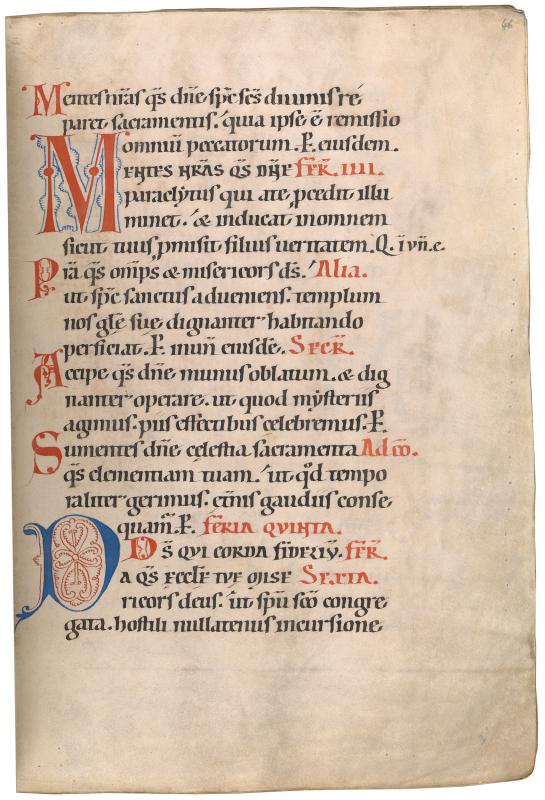 66
Mentes nr̄as q̄s dn̄e sp̄c sc̄s diuinis re
paret sacramentis. quia ipse ē remissio
omniū peccatorum. P̄. eiusdem.
MENTES NR̄AS Q̄S DN̄E FER̄. IIII.
paraclytus qui a te pcedit illu
minet. & inducat inomnem
sicut tuus pmisit filius ueritatem. Q. ī vn̄. e.
Pr̄a q̄s om̄ps & misericors ds̄. Alia.
ut sp̄c sanctus adueniens. templum
nos glē sue dignanter habitando
perficiat. P̄. in un̄ eiusdē. SECR̄.
Accipe q̄s dn̄e munus oblatum. & dig
nanter operare. ut quod mysteriis
agimus. piis effectibus celebremus. P̄.
Sumentes dn̄e celestia sacramenta Ad cō.
q̄s clementiam tuam. ut qd tempo
raliter gerimus. et̄nis gaudiis conse
quam̄. P̄. FERIA QUINTA.
DS̄ QUI CORDA FIDELIŪ. FER̄.
DA Q̄S ECCLE TUE MISE SEXTA.
ricors deus. ut sp̄u sc̄o congre
gata. hostili nullatenus incursione